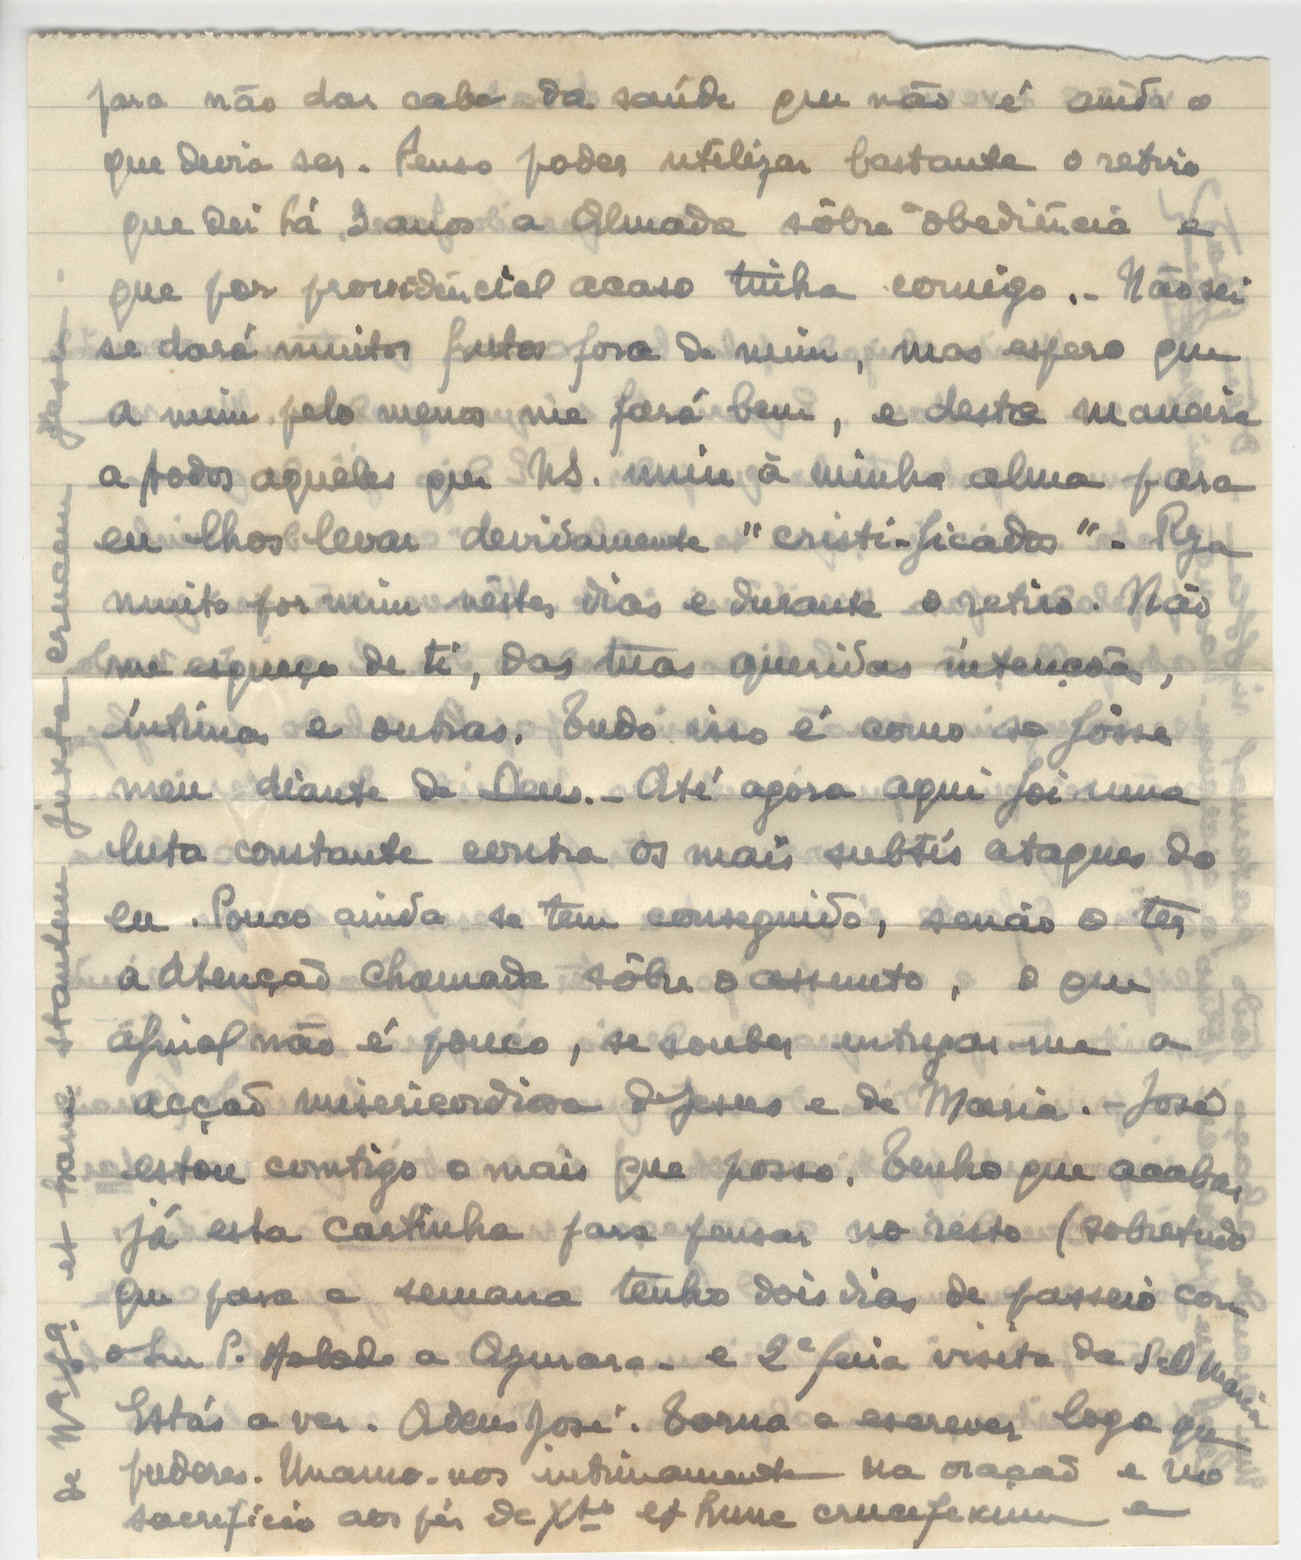 para não dar cabo da saúde que não é ainda o
que devia ser. Penso poder utilizar bastante o retiro
que dei há 2 anos a Almada sôbre obediência e
que por providencial acaso tinha comigo. - Não sei
se dará muitos frutos fora de mim, mas espero que
a mim pelo menos me fará bem, e desta maneira
a todos aqueles que NS. uniu à minha alma para
eu lhos levar devidamente "cristi-ficados". - Pega
muito por mim nêstes dias e durante o retiro. Não
me esqueço de ti, das tuas queridas intenções,
íntimas e outras. Tudo isso é como se fôsse
meu diante de Deus. - Até agora aqui foi uma
luta constante contra os mais subtis ataques do
eu. Pouco ainda se tem conseguido, senão o ter
a atenção chamada sôbre o assunto, o que
afinal não é pouco, se souber entregar-me a
acção misericordiosa de Jesus e de Maria. - José
estou comtigo o mais que posso. Tenho que acabar
já esta cartinha para pensar no resto (sobretudo
que para a semana tenho dois dias de passeio com
o Sr. P. a Azurara - e 2ª feira visita da
Estás a ver. Adeus José. Torna a escrever logo que
puderes. Unamo-nos intimamente na oração e no
sacrifício aos pés de Xto et hunc crucifixum e
de Nª Sª. et hanc stantem juxta crucem Jesu.